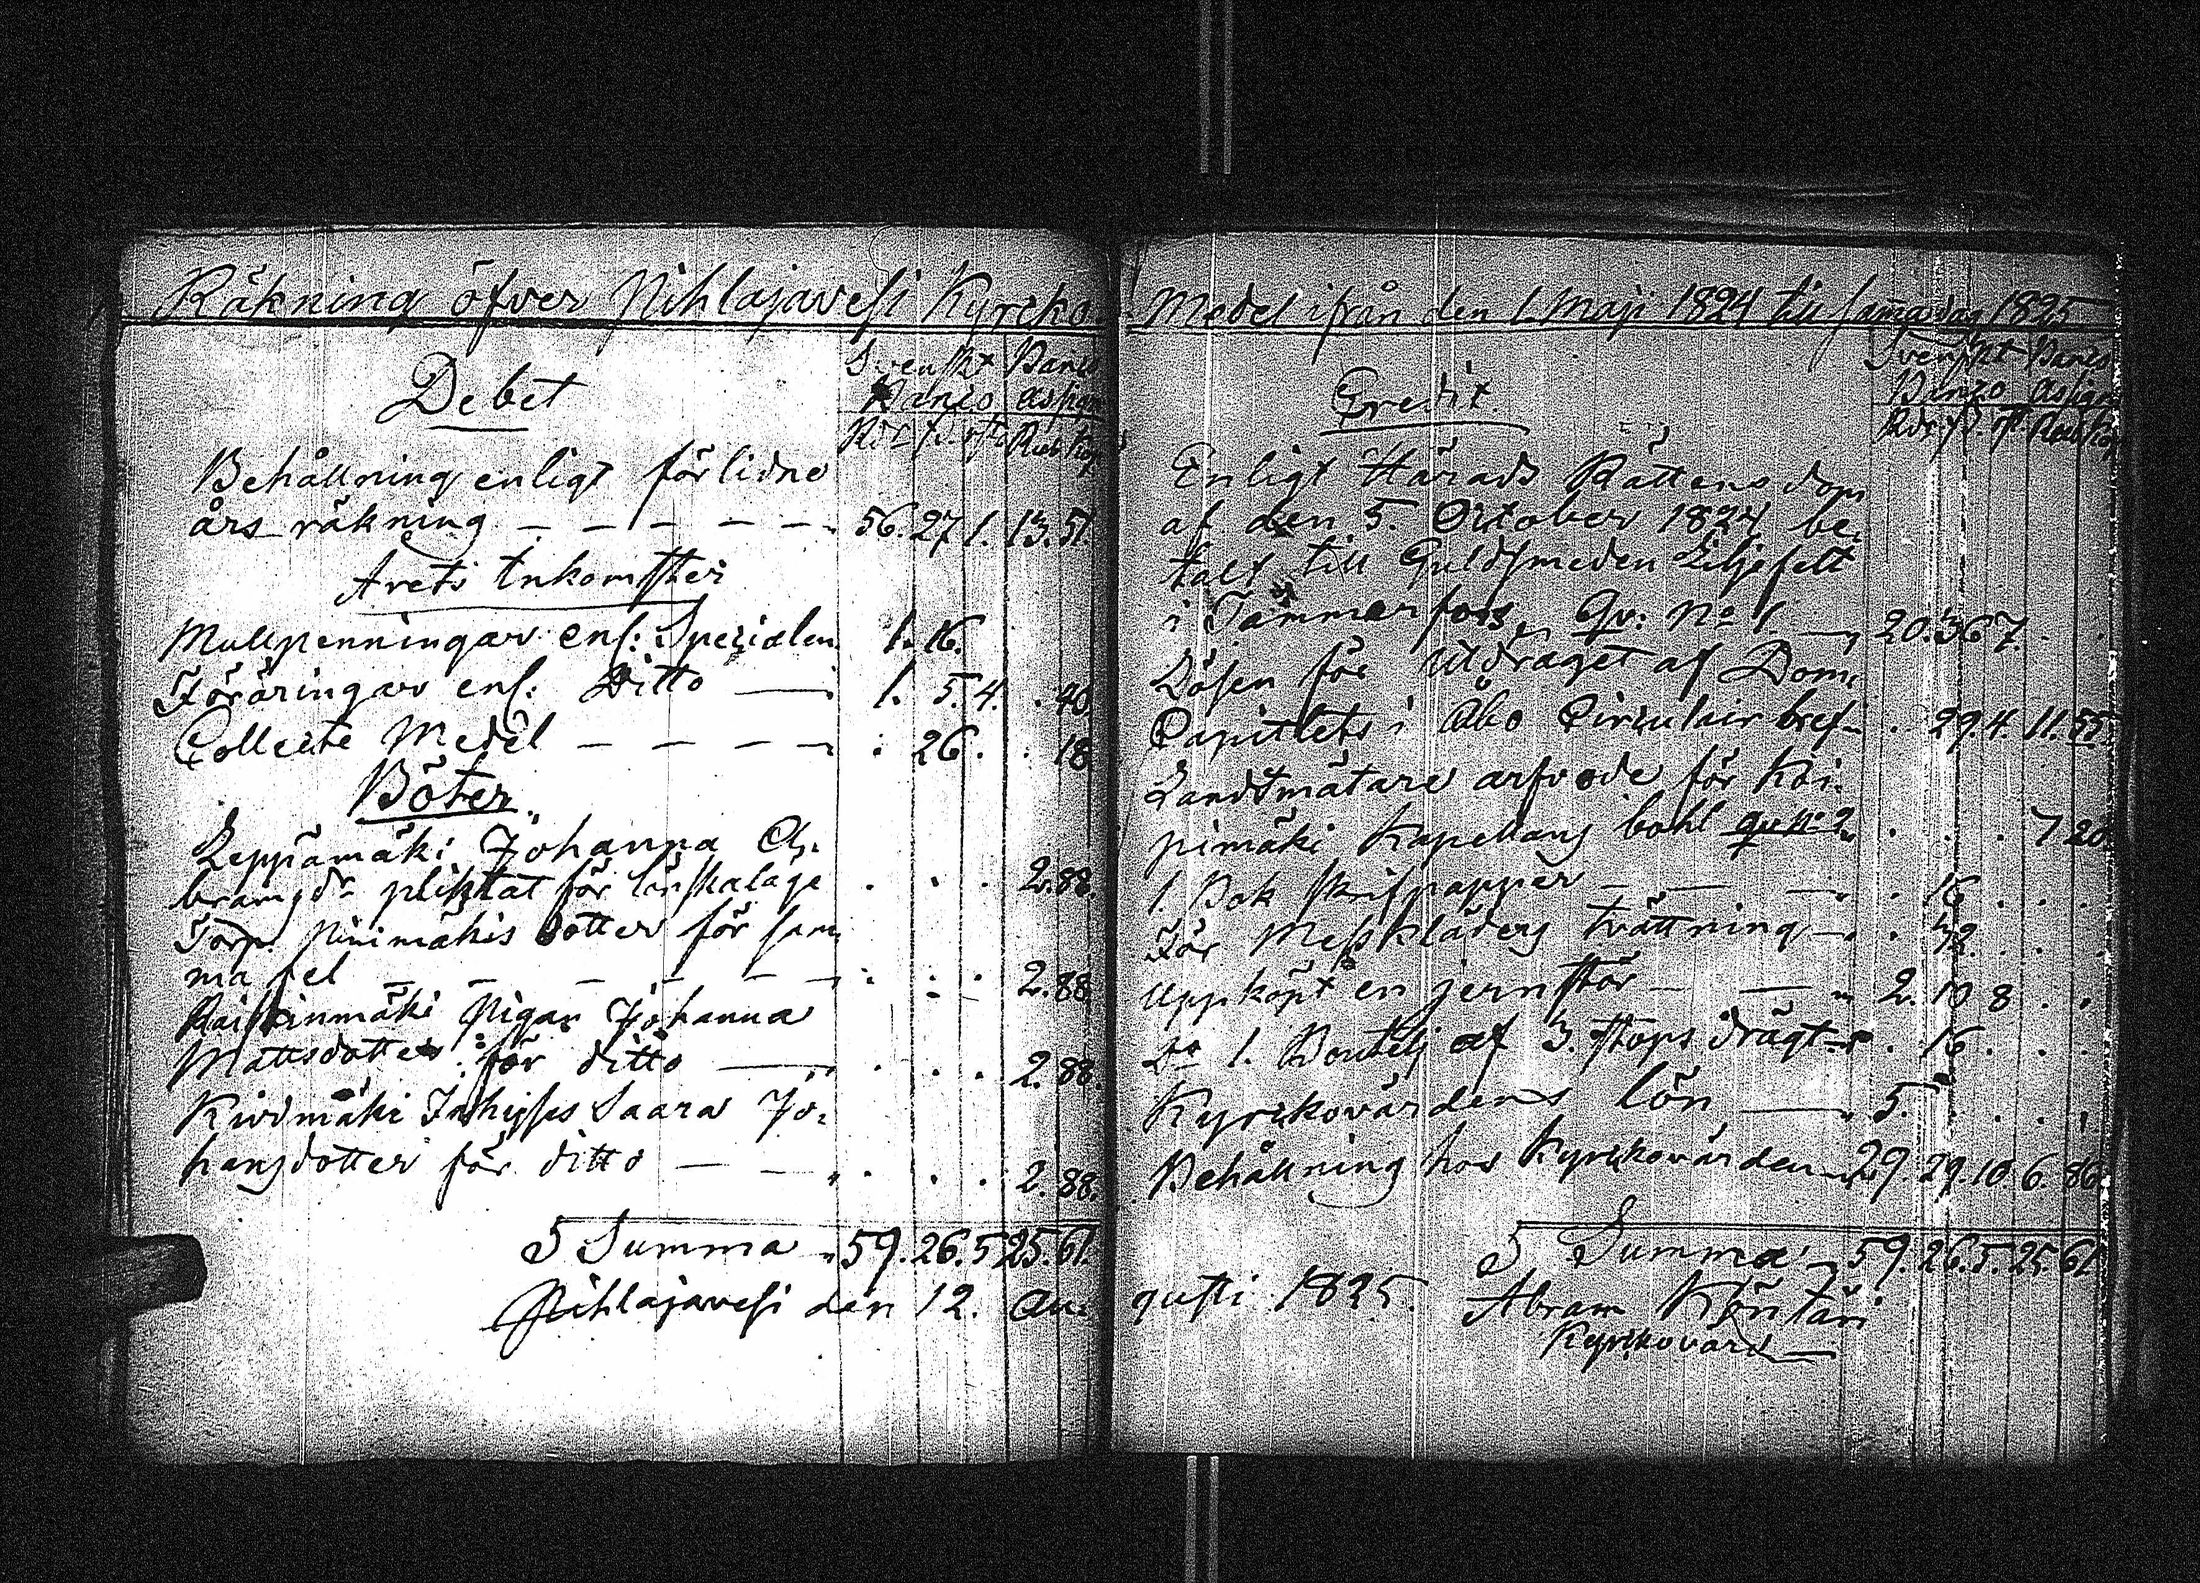 Räkning öfver Pihlajavesi Kyrcko
Debet
Svenskt Banco
Banco Assign
Rdr s. rst Rub Kop
Behållning enligt förlidne
års räkning — — — — — 56. 27 1. 13. 51.
Årets Inkomster
Mullpenningar enl: Specialen 1. 16.
Föräringar enl: Ditto — 1. 5. 4. . 40.
Collecte Medel — — — — . 26. . . 18
Böter
Leppämäki Johanna A.
bramsdr pliktat för lönskaläge . . . 2. 88.
Torp. Pinimäkis dotter för sam
ma fel — — — — — . . . 2. 88
Raiskinmäki Pigan Johanna
Mattsdotter för ditto — . . . 2. 88.
Kivimäki Inhyses Saara Jo-
hansdotter för ditto — — . . . 2. 88.
S Summa 59. 26. 5 25. 61.
Pihlajavesi den 12. Au-
Medel ifrån den 1. Maji 1824 till samma dag 1825
Credit.
Svenskt Banco
Banco Assign
Rdr s. rst Rub Kop
Enligt Härads Rättens dom
af den 5. October 1824 be-
talt till Guldsmeden Liljefelt
i Tammerfors, qv: No 1 — 20. 36 7. . .
Lösen för utdraget af Dom-
Capitlets i Åbo Circulair bref . 29. 4. 11. 55
Landtmätare arfvode för Koi-
pimäki Kapellans bohl qv No 2 . . . 7 20
1. Bok skrifpapper — — — . 16 . . .
För Messkläders tvättning — . 42. . .
Uppköpt en jernstör — — 2. 10 8 . .
Do 1. Boutelj af 3. stops drägt . 16. . .
Kyrckovärdens lön — 5. . . . .
Behållning hos Kyrckovärden 29. 29. 10 6. 86.
S Summa 59. 26. 5. 25. 61
gusti 1825.
Abram Köntäri
Kyrckovärd —